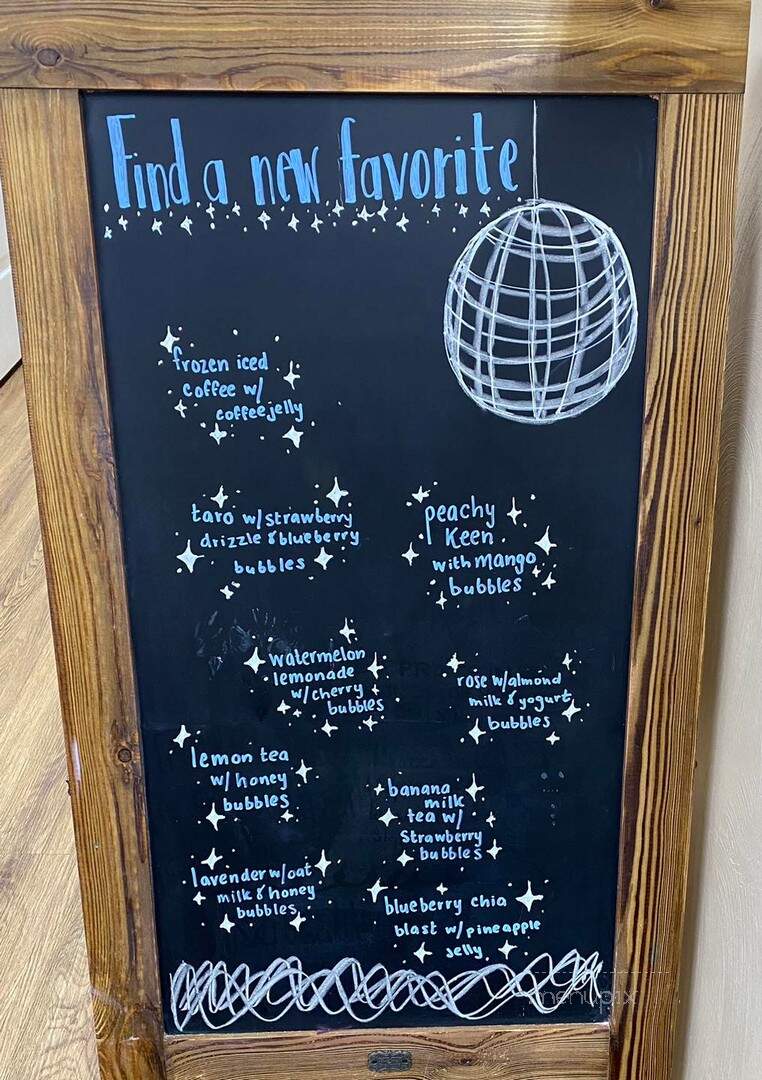 Find a new favorite
frozen iced
coffee w/
coffee jelly
taro w/strawberry
drizzle & blueberry
bubbles
peachy
Keen
with mango
bubbles
watermelon
lemonade
w/cherry
bubbles
rose w/almond
milk & yogurt
bubbles
lemon tea
w/honey
bubbles
banana
milk
tea w/
strawberry
bubbles
lavender w/oat
milk & honey
bubbles
blueberry chia
blast w/pineapple
jelly
menupix